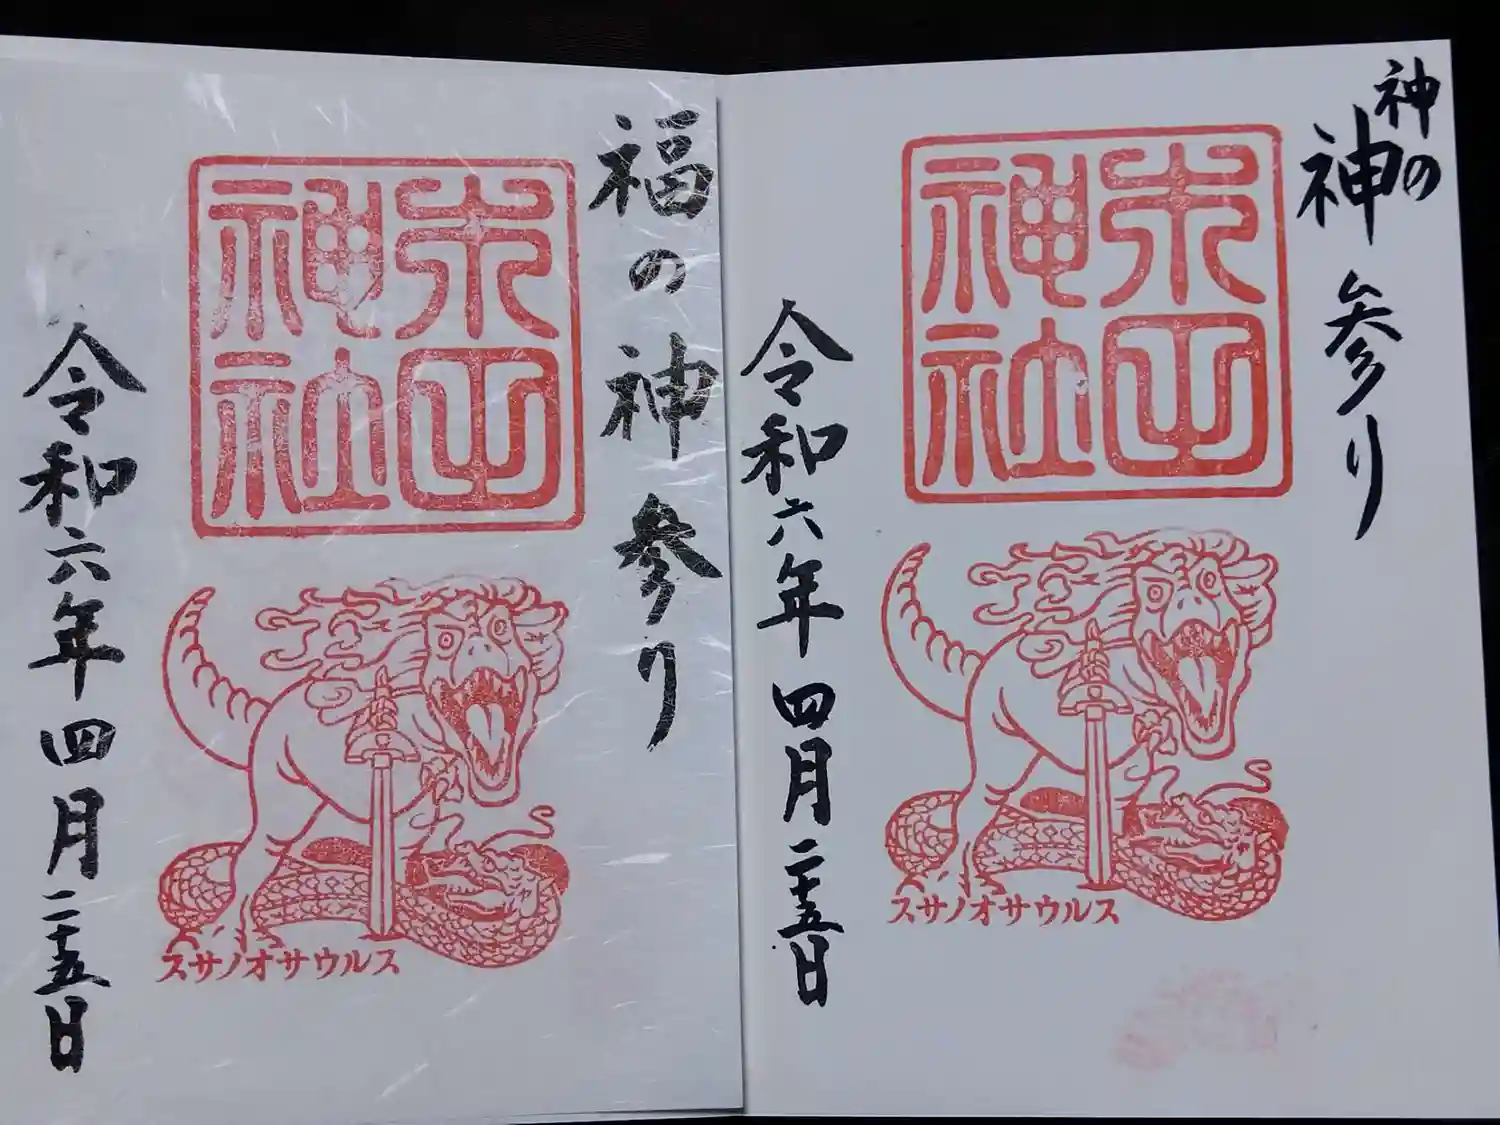 神の
神参り
神社
スサノオサウルス
令和六年四月二十五日
福の神参り
神社
スサノオサウルス
令和六年四月二十五日